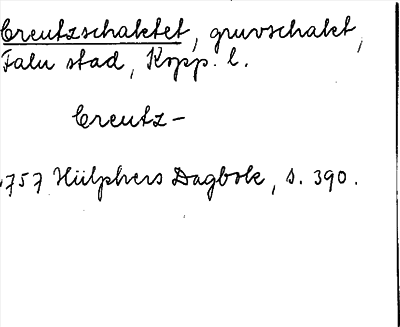 Creutzschaktet, gruvschakt,
Falu stad, Kopp. l.
Creutz-
1757 Hülphers Dagbok, s. 390.